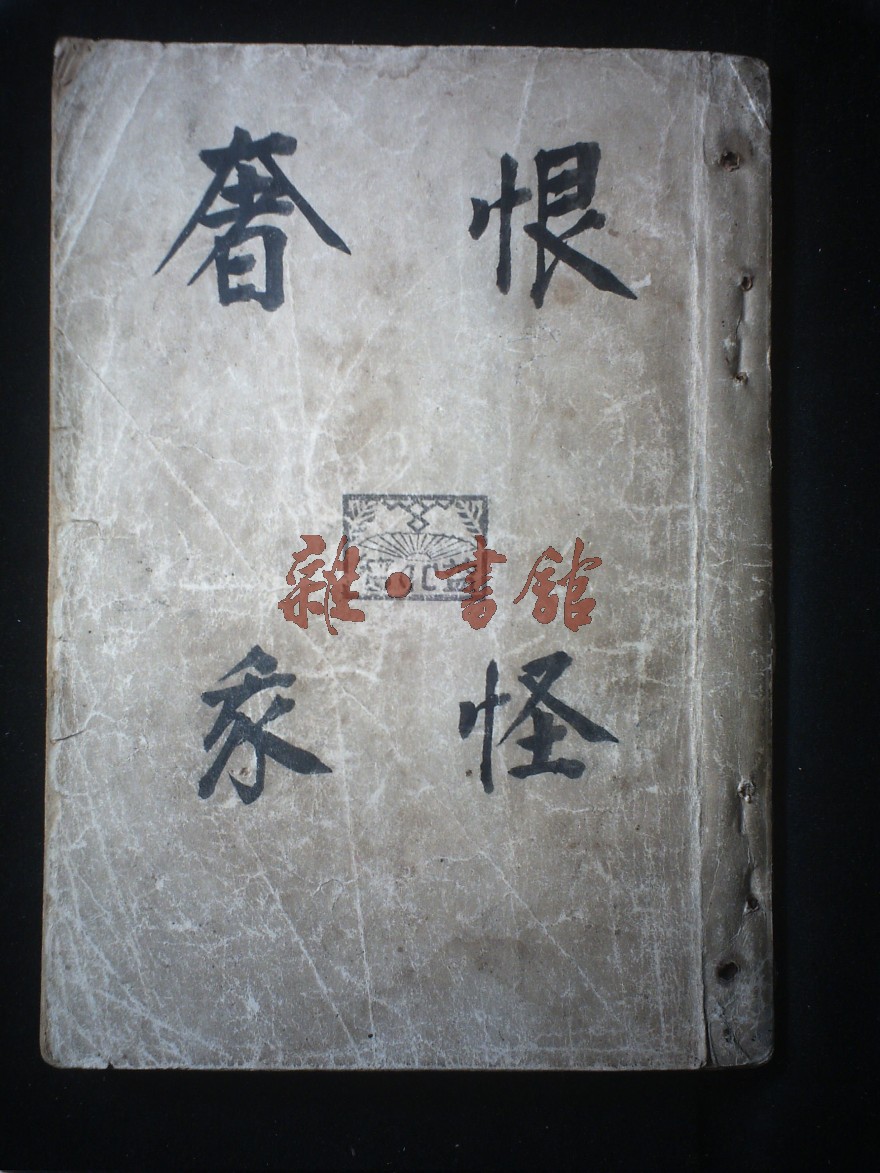 恨怪
奢
雜·書館